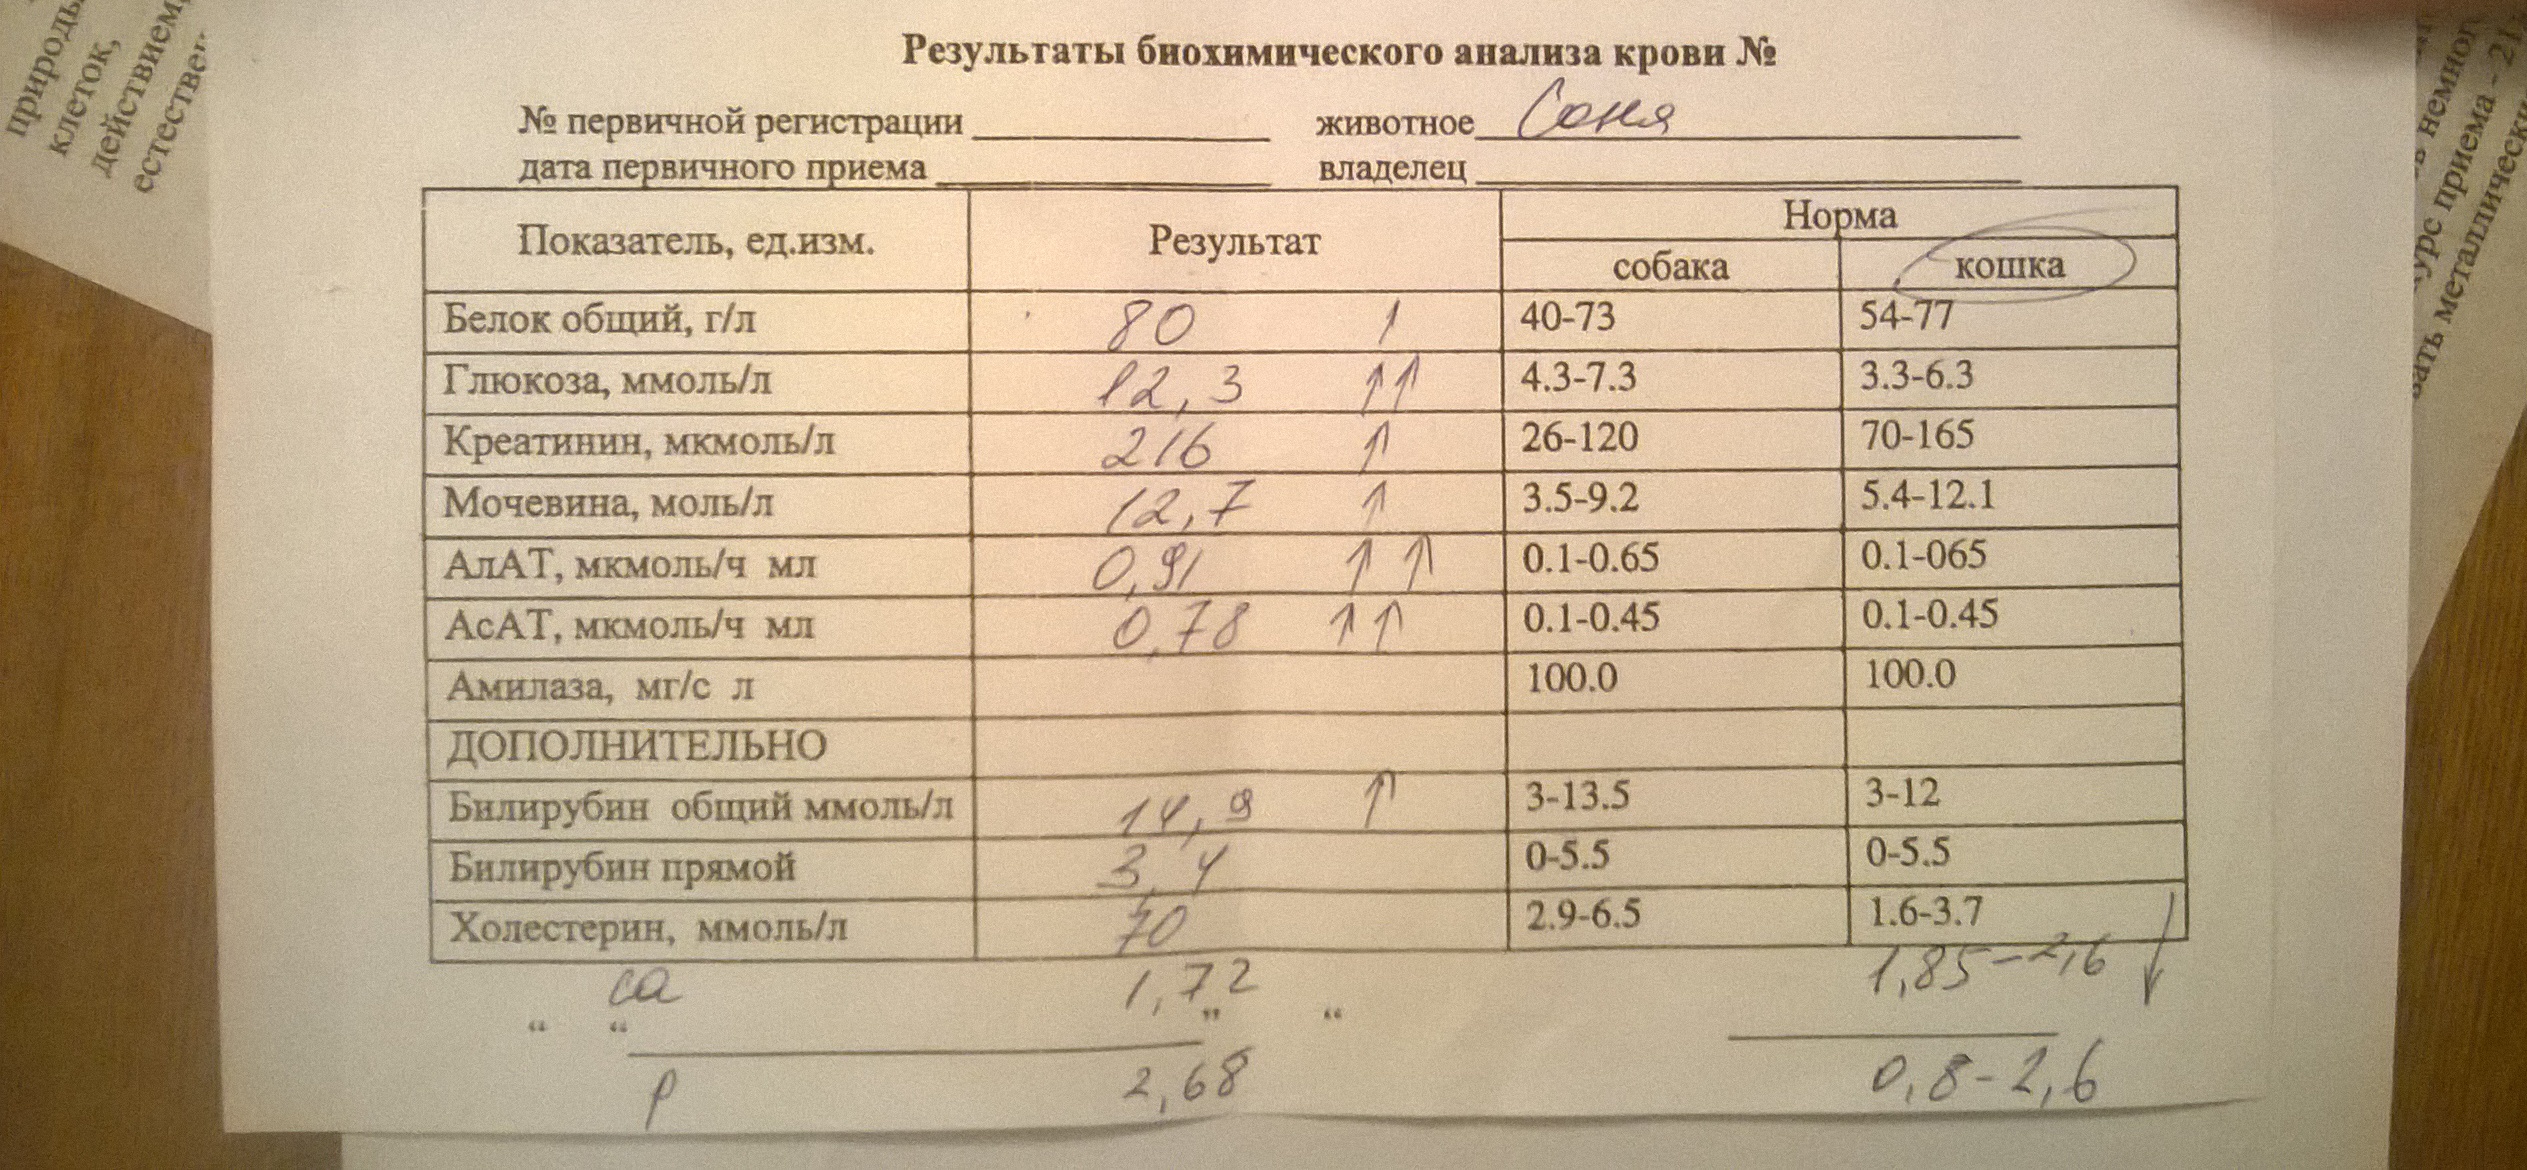 Результаты биохимического анализа крови №
№ первичной регистрации животное Соня
дата первичного приема владелец
Показатель, ед.изм. Результат Норма
собака кошка
Белок общий, г/л 80 ↑ 40-73 54-77
Глюкоза, ммоль/л 12,3 ↑↑ 4.3-7.3 3.3-6.3
Креатинин, мкмоль/л 216 ↑ 26-120 70-165
Мочевина, моль/л 12,7 ↑ 3.5-9.2 5.4-12.1
АлАТ, мкмоль/ч мл 0,91 ↑↑ 0.1-0.65 0.1-065
АсАТ, мкмоль/ч мл 0,78 ↑↑ 0.1-0.45 0.1-0.45
Амилаза, мг/с л 100.0 100.0
ДОПОЛНИТЕЛЬНО
Билирубин общий ммоль/л 14,9 ↑ 3-13.5 3-12
Билирубин прямой 3,4 0-5.5 0-5.5
Холестерин, ммоль/л 70 2.9-6.5 1.6-3.7
Ca 1,72 1,85-2,6 ↓
“ “ „ “
P 2,68 0,8-2,6
природы
клеток,
действием,
приема - 21